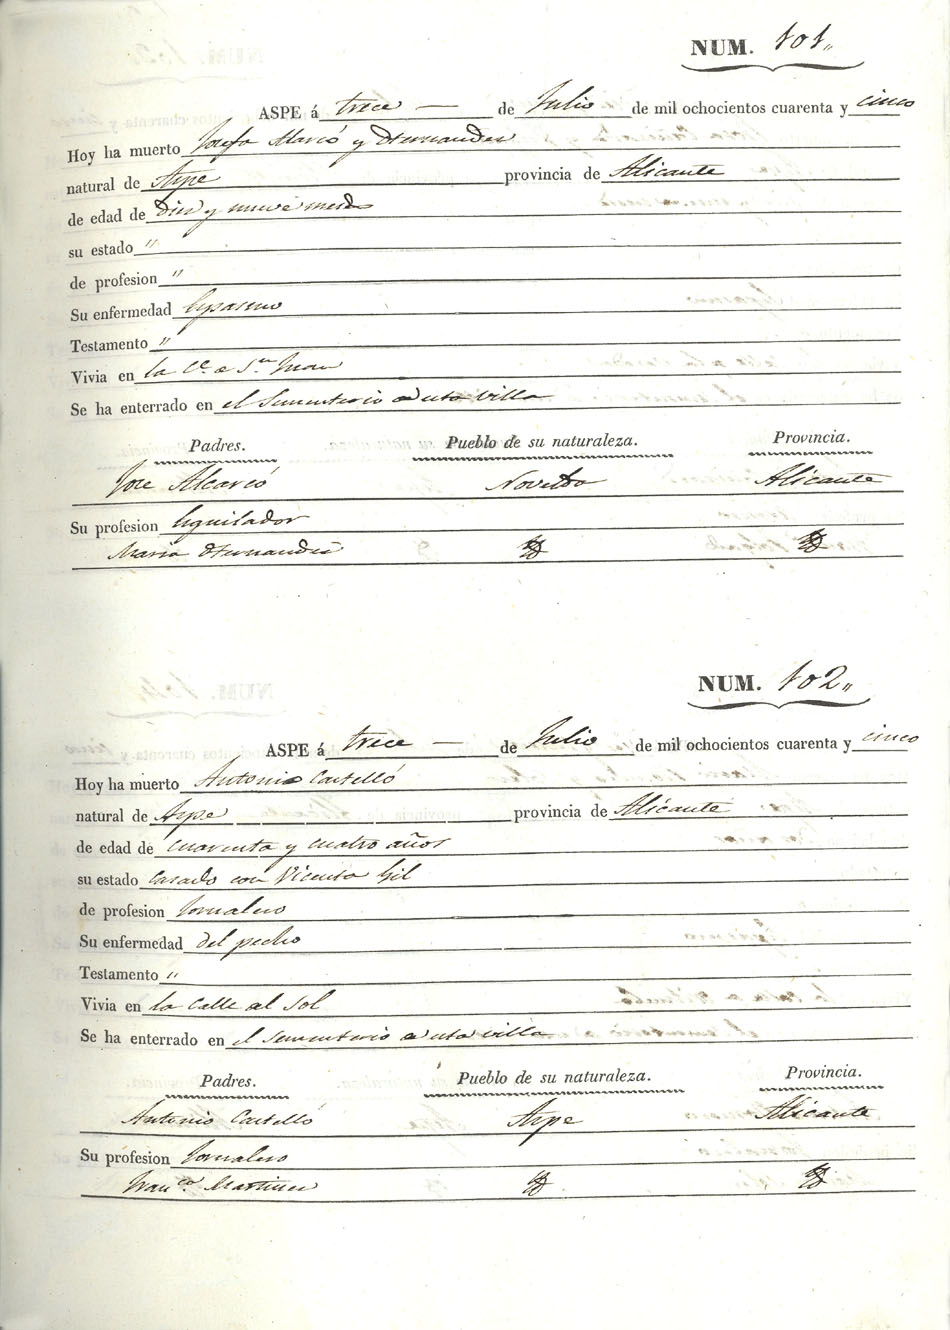 NUM. 101„
ASPE á trece de Julio de mil ochocientos cuarenta y cinco
Hoy ha muerto Josefa Alarcó y Hernandez
natural de Aspe provincia de Alicante
de edad de diez y nueve meses
su estado „
de profesion „
Su enfermedad
Testamento „
Vivia en la C.e de S.n Juan
Se ha enterrado en el Sementerio de esta villa
Padres. Pueblo de su naturaleza. Provincia.
Jose Alcarcó Novelda Alicante
Su profesion Esquilador
Maria Hernandez
NUM. 102„
ASPE á trece de Julio de mil ochocientos cuarenta y cinco
Hoy ha muerto Antonio Castelló
natural de Aspe provincia de Alicante
de edad de cuarenta y cuatro años
su estado casado con Vicenta Gil
de profesion Jornalero
Su enfermedad del pecho
Testamento „
Vivia en la Calle del Sol
Se ha enterrado en el Sementerio de esta villa
Padres. Pueblo de su naturaleza. Provincia.
Antonio Castelló Aspe Alicante
Su profesion Jornalero
Fran.ca Martinez